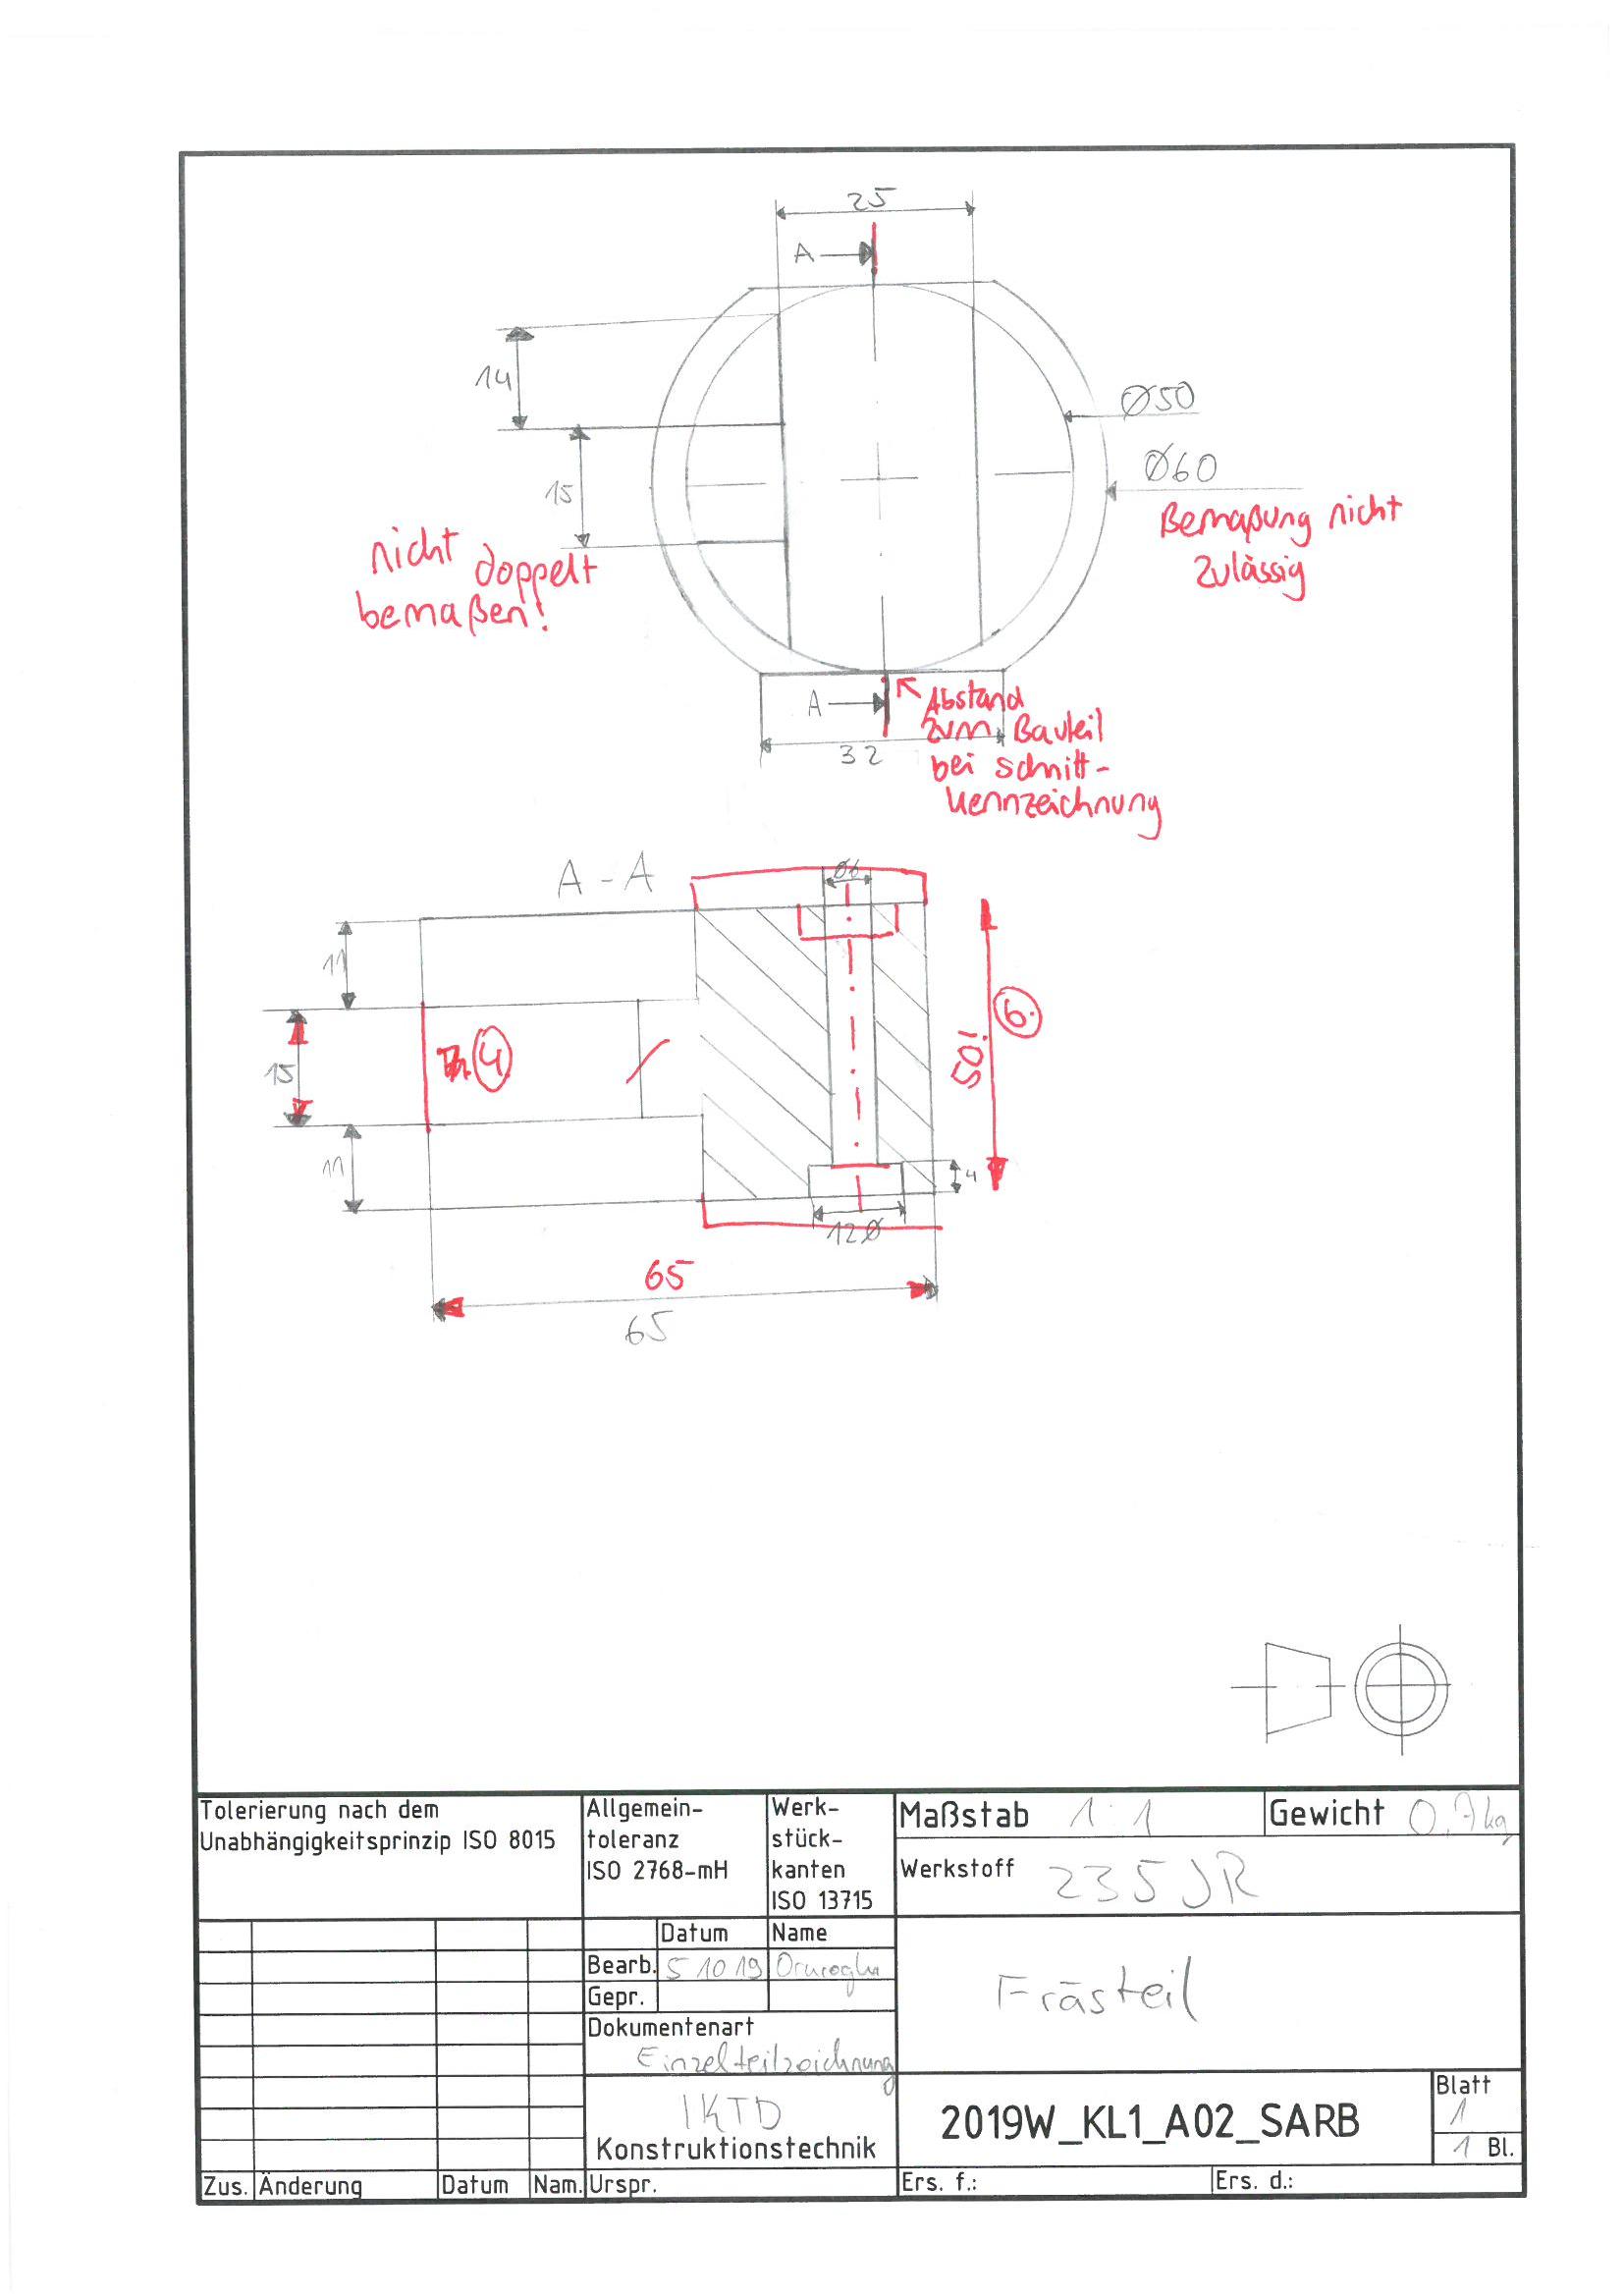 25
A
14
Ø50
15
Ø60
Bemaßung nicht
zulässig
nicht doppelt
bemaßen!
A
Abstand
zum Bauteil
bei Schnitt-
kennzeichnung
32
A - A
Ø6
11
15
4
6.
50!
11
4
12Ø
65
65
Tolerierung nach dem
Unabhängigkeitsprinzip ISO 8015
Allgemein-
toleranz
ISO 2768-mH
Werk-
stück-
kanten
ISO 13715
Maßstab 1:1
Gewicht 0,7kg
Werkstoff 235JR
Datum Name
Bearb. 5 10 19
Gepr.
Frästeil
Dokumentenart
Einzelteilzeichnung
IKTD
Konstruktionstechnik
2019W_KL1_A02_SARB
Blatt
1
1 Bl.
Zus. Änderung Datum Nam. Urspr. Ers. f.: Ers. d.: